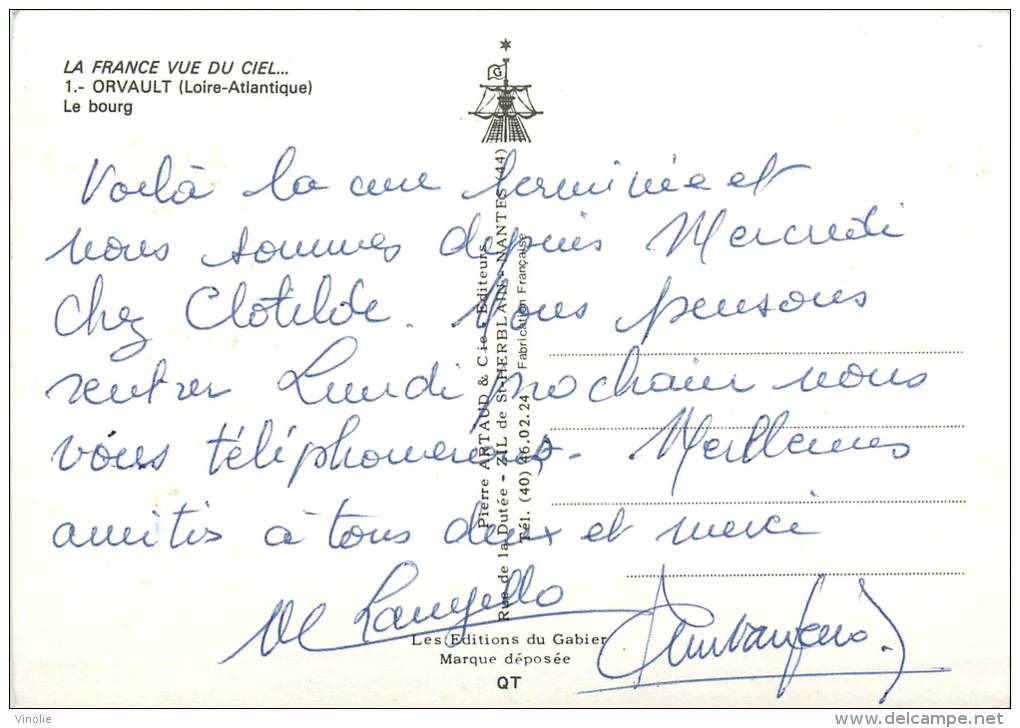 LA FRANCE VUE DU CIEL...
1.- ORVAULT (Loire-Atlantique)
Le bourg
G
Voilà la cure terminée et
nous sommes depuis Mercredi
chez Clotilde. Nous pensons
rentrer Lundi prochain nous
vous téléphonerons. Meilleures
amitiés à tous deux et merci
Pierre ARTAUD & Cie - Editeurs
Rue de la Dutée - ZIL de St-HERBLAIN - NANTES (44)
Tél. (40) 46.02.24 Fabrication Française
Les Editions du Gabier
Marque déposée
QT
Vinolie
www.delcampe.net